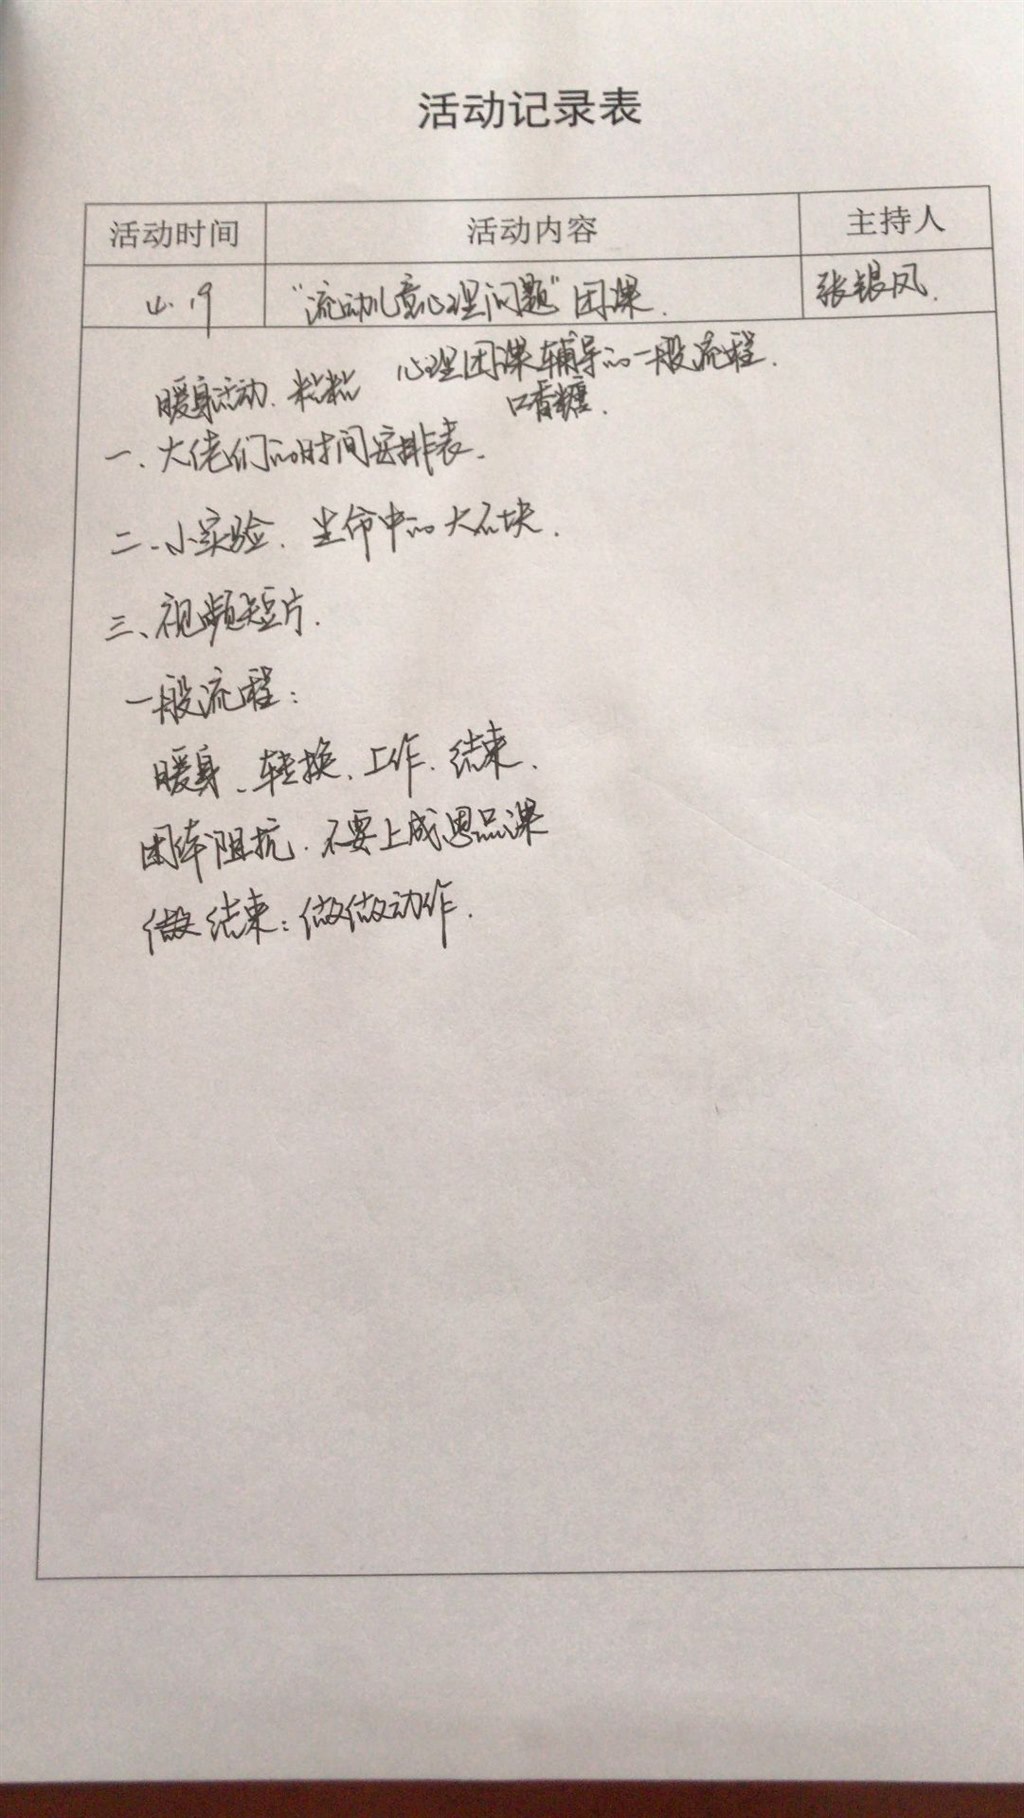 活动记录表
活动时间 活动内容 主持人
4.19 “流动儿童心理问题”团课. 张银凤.
心理团课辅导的一般流程.
暖身活动. 粘粘 口香糖.
一、大佬们的时间安排表.
二、小实验. 生命中的大石块.
三、视频短片.
一般流程:
暖身、转换、工作、结束.
团体阻抗. 不要上成思品课
做结束:做做动作.